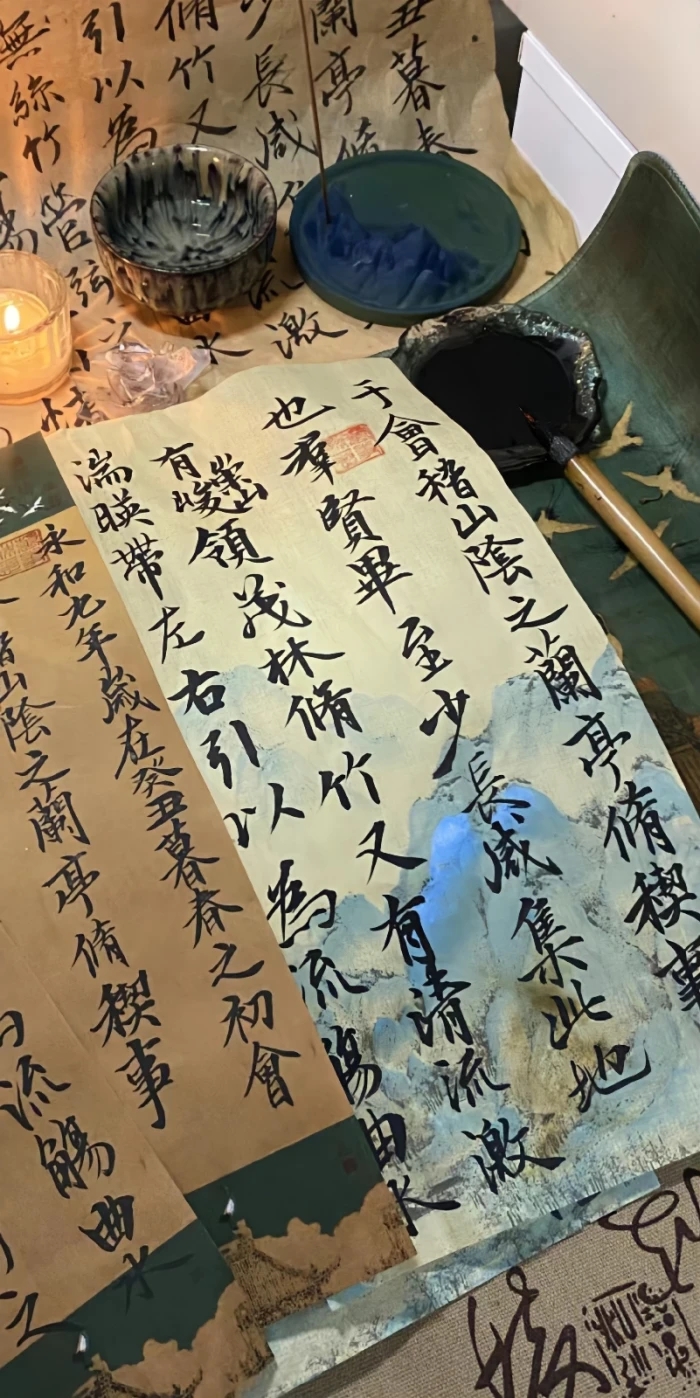 丑暮春
蘭亭脩
少長咸
脩竹又流激
引以為水
無絲竹管弦之
觴情
于會稽山陰之蘭亭脩稧事
也羣賢畢至少長咸集此地
有崇山峻領茂林脩竹又有清流激
湍暎帶左右引以為流觴曲水
永和九年歲在癸丑暮春之初會
稽山陰之蘭亭脩稧事
流觴曲水